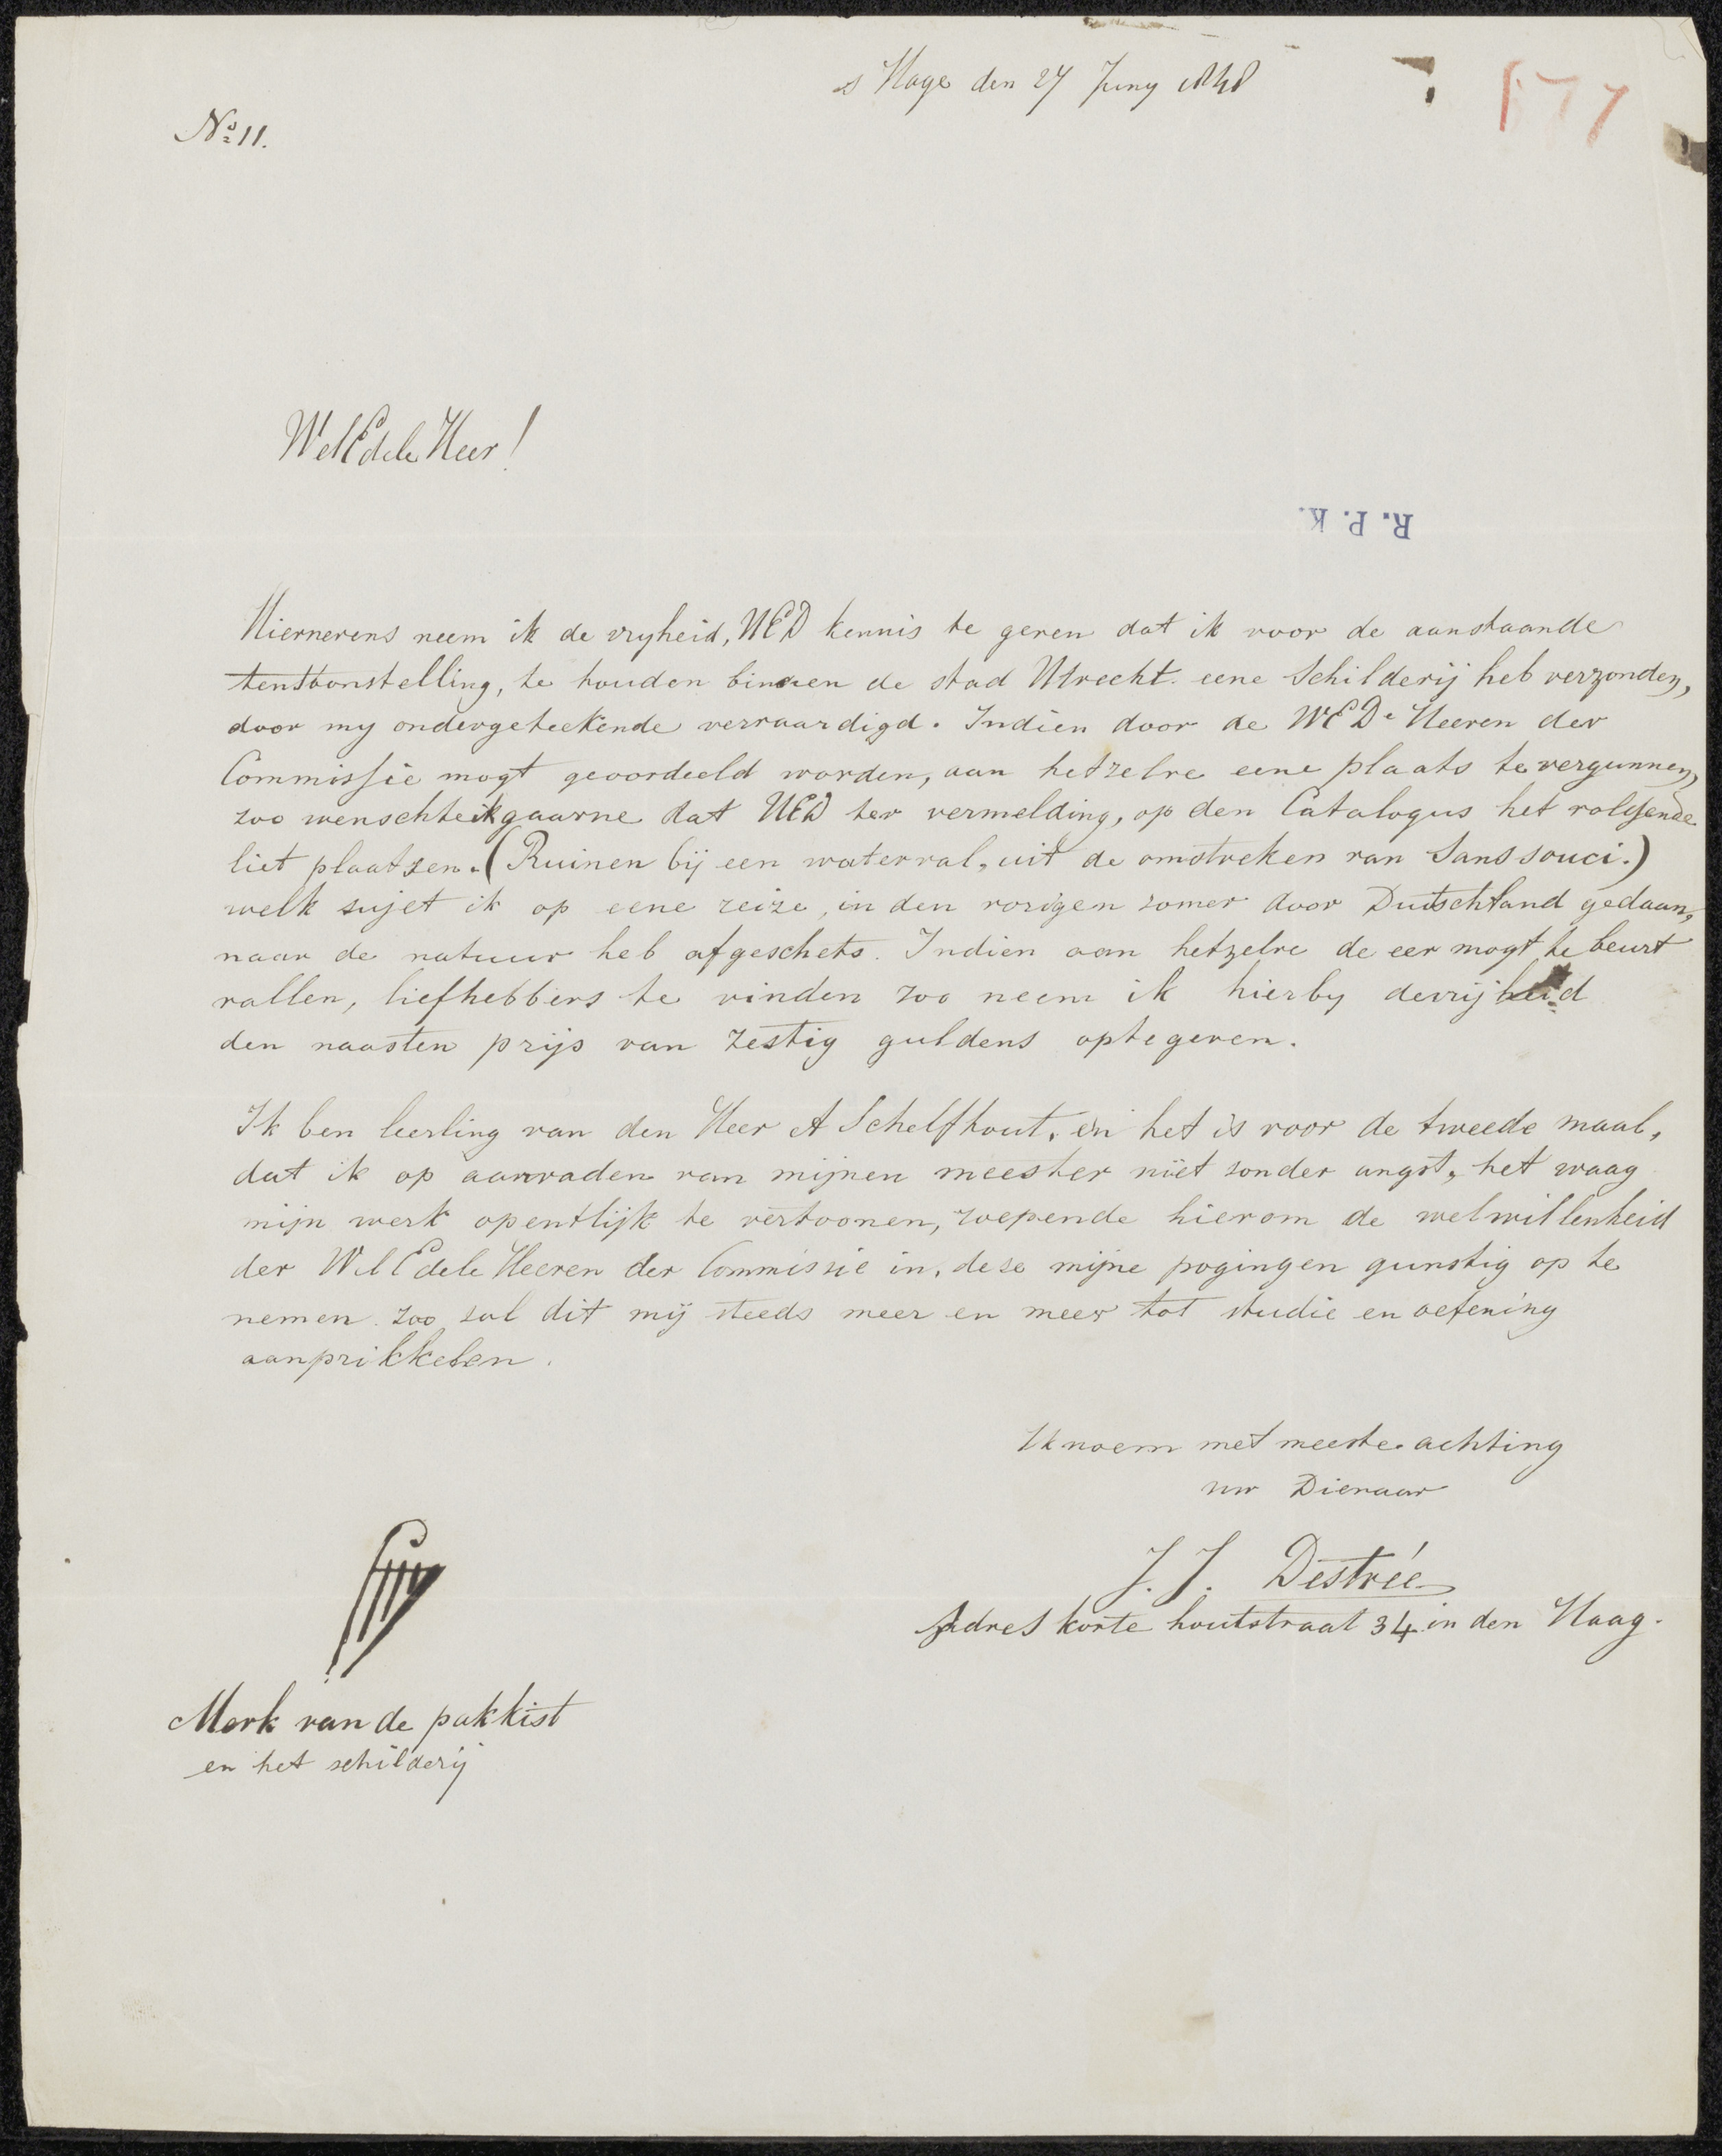 s Hage den 27 Juny 1848
177
No 11.
WelEdele Heer!
R. P. K.
Hiernevens neem ik de vryheid, UED kennis te geven dat ik voor de aanstaande
tentoonstelling, te houden binnen de stad Utrecht. eene Schilderij heb verzonden,
door my ondergeteekende vervaardigd. Indien door de WED Heeren der
Commissie mogt geoordeeld worden, aan hetzelve eene plaats te vergunnen,
zoo wenschte ik gaarne dat UED ter vermelding, op den Catalogus het volgende
liet plaatzen. (Ruinen bij een waterval, uit de omstreken van Sanssouci.)
welk sujet ik op eene reize, in den vorigen zomer door Duitschland gedaan,
naar de natuur heb afgeschets. Indien aan hetzelve de eer mogt te beurt
vallen, liefhebbers te vinden zoo neem ik hierby de vrijheid
den naasten prijs van zestig guldens optegeven.
Ik ben leerling van den Heer A Schelfhout, en het is voor de tweede maal,
dat ik op aanraden van mijnen meester niet sonder angst, het waag
mijn werk opentlijk te vertoonen, roepende hierom de welwillenheid
der WelEdele Heeren der Commissie in, deze mijne pogingen gunstig op te
nemen. zoo zal dit mij steeds meer en meer tot studie en oefening
aanprikkelen.
Ik noem met meeste achting
uw Dienaar
J. J. Destrée
Adres korte houtstraat 34 in den Haag.
Merk van de pakkist
en het schilderij